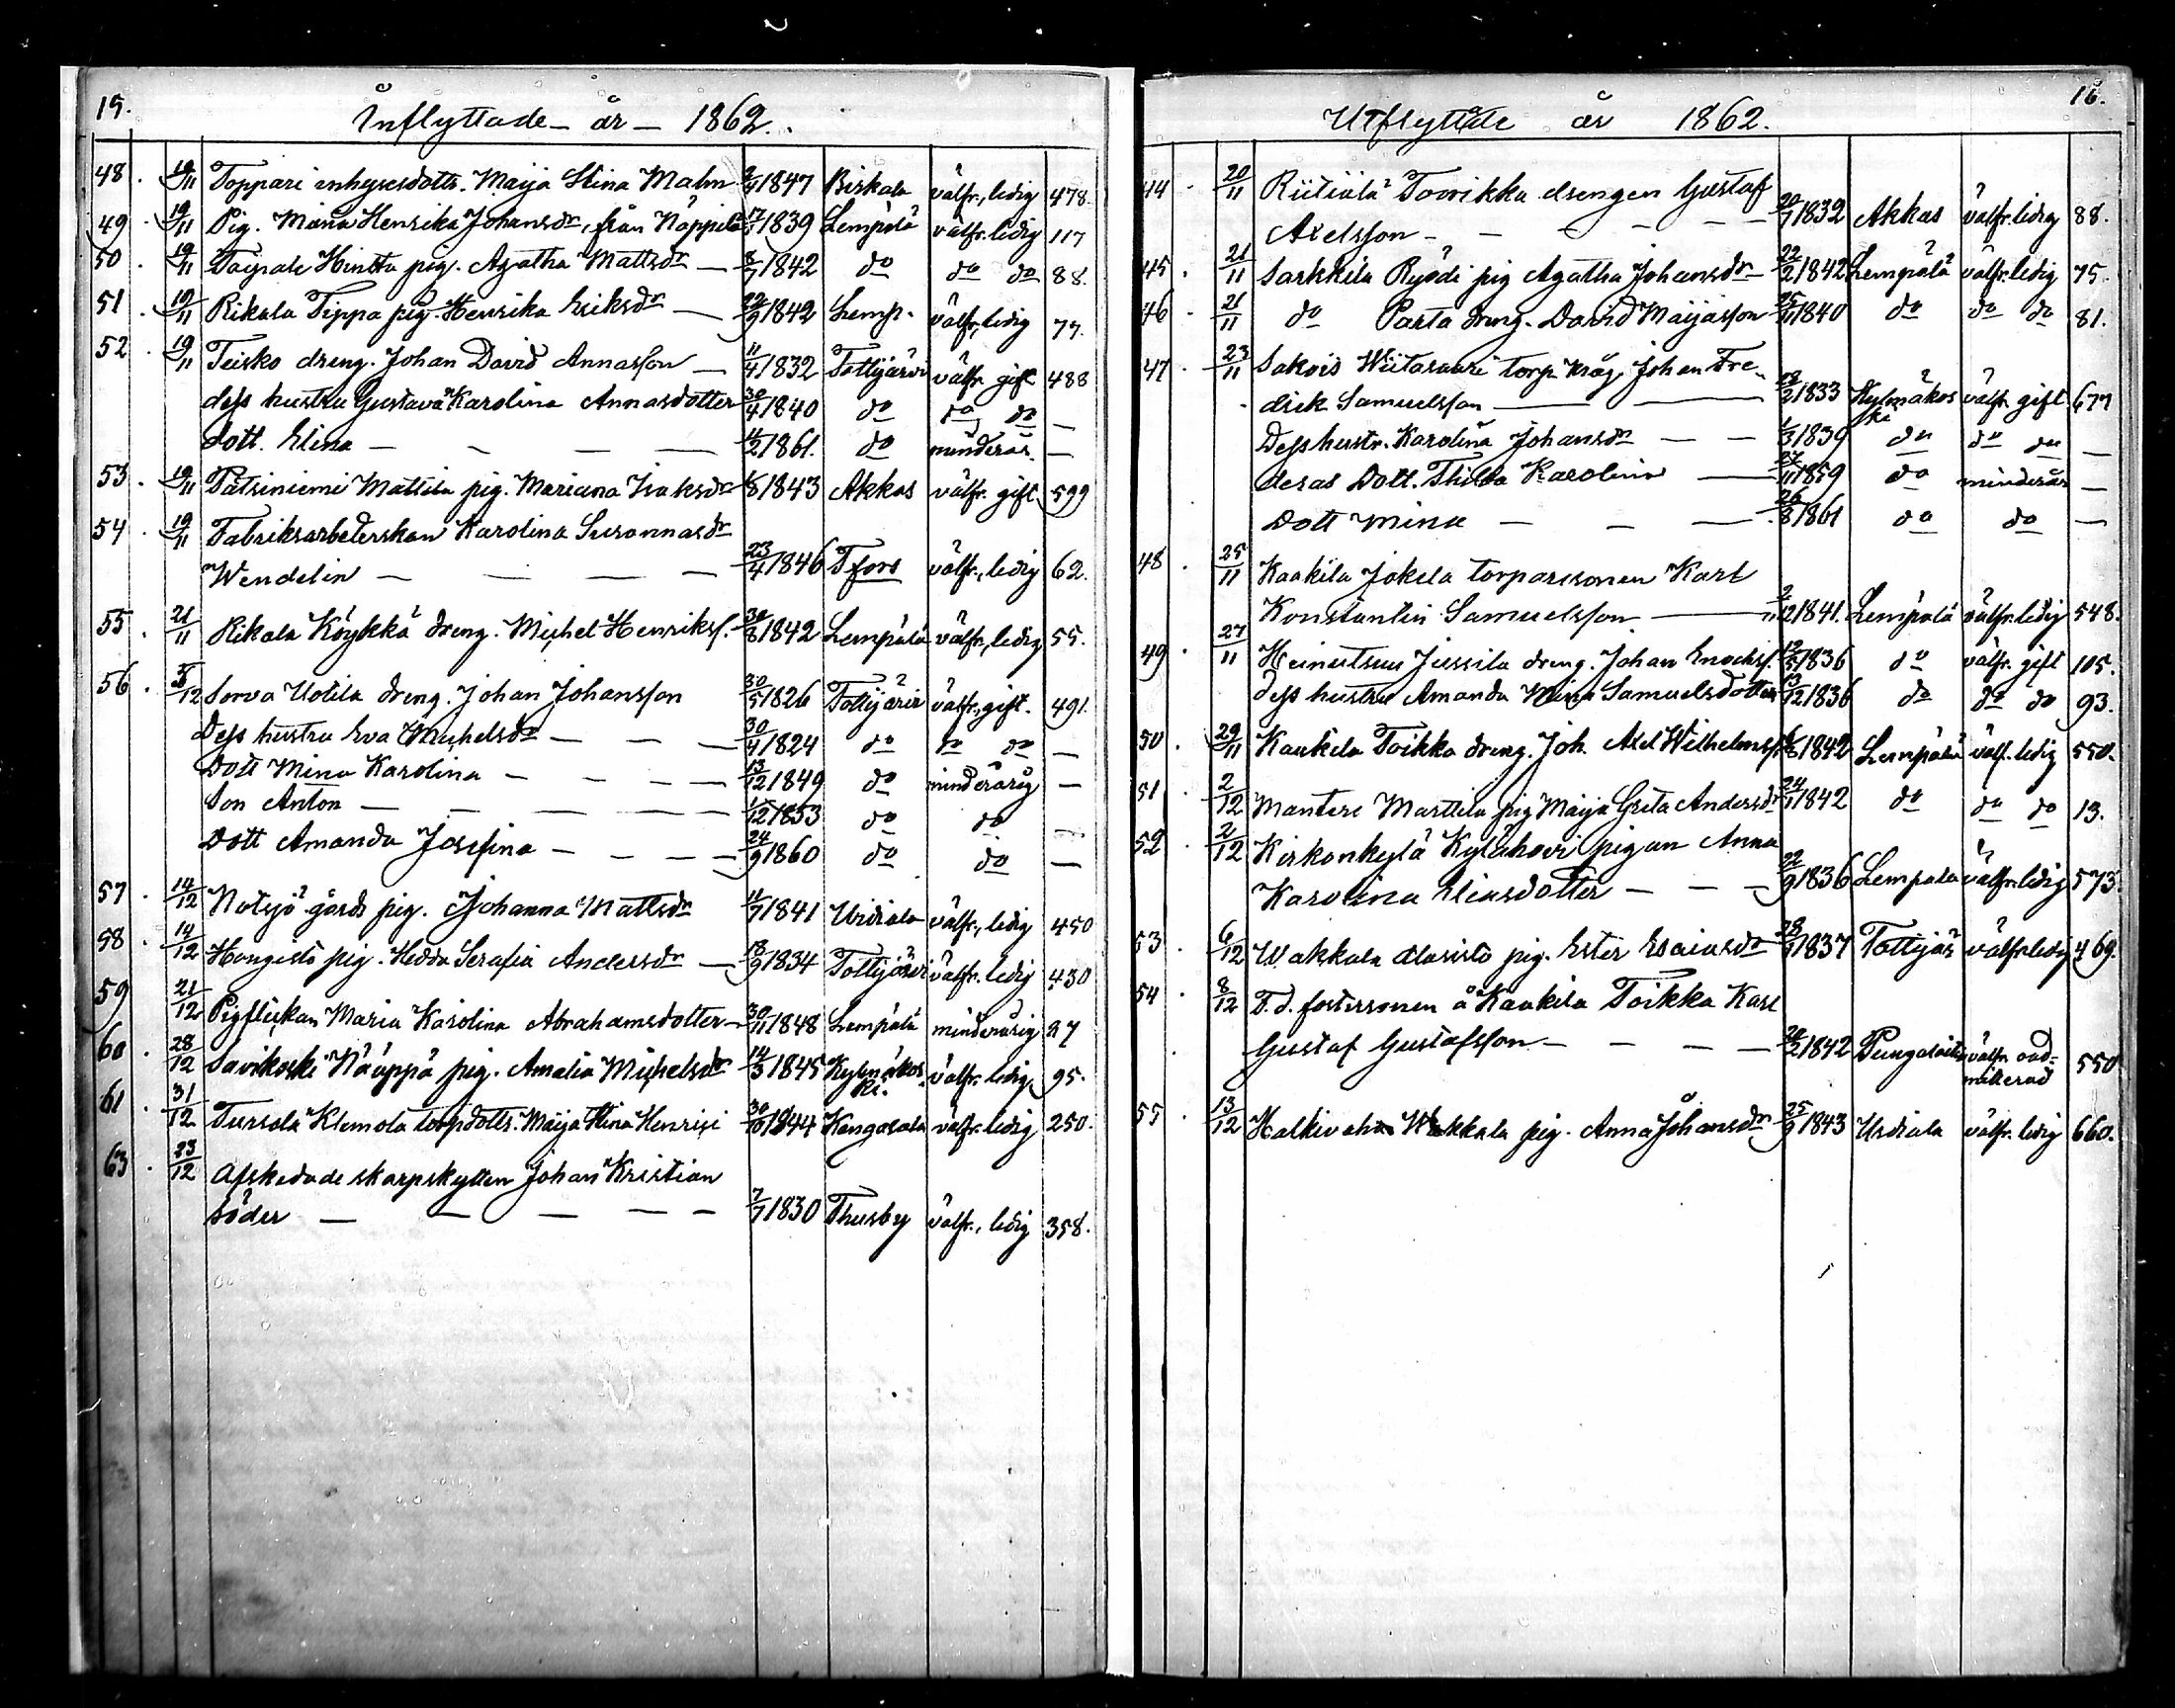 15.
Inflyttade år 1862.
48. 19/11 Toppari inhysesdottr. Maija Stina Malm 2/4 1847 Birkala välfr., ledig 478.
49. 19/11 Pig. Maria Henrika Johansdr, från Näppilä 17/ 1839 Lempälä välfr. ledig 117
50. 19/11 Hintta pig. Agatha Mattsdr — 8/7 1842 do do do 88.
51. 19/11 Rikala Tippa pig. Henrika Eriksdr — 22/9 1842 Lemp. välfr., ledig 77.
52. 19/11 Teisko dreng. Johan David Annasson — 11/4 1832 Tottijärvi välfr. gift 488
dess hustru Gustava Karolina Annasdotter 30/4 1840 do do do —
dott. Elina — — — 1861. do minderår. —
53. 19/11 Pätsiniemi Mattila pig. Mariana Isaksdr 1843 Akkas välfr. gift 599
54. 19/11 Fabriksarbeterskan Karolina Susannasdr
Wendelin — — — — 23/4 1846 Tfors välfr., ledig 62.
55. 21/11 Rikala Köykkä dreng. Michel Henrikss. 30/8 1842 Lempälä välfr., ledig 55.
56. 5/12 Sorva Uotila dreng. Johan Johansson 30/5 1826 Tottijärvi välfr., gift. 491.
Dess hustru Eva Michelsdr — — — 30/4 1824 do do do —
Dott Mina Karolina — — — — 13/12 1849 do minderårig —
Son Anton — — — — — 1/12 1853 do do —
Dott Amanda Josefina — — — — 24/9 1860 do do —
57. 14/12 Notsjö gårds pig. Johanna Mattsdr 1841 Urdiala välfr., ledig 450
58. 14/12 Hongisto pig. Hedda Serafia Andersdr — 18/9 1834 Tottijärvi välfr. ledig 430
59 21/12 Pigflickan Maria Karolina Abrahamsdotter — 30/11 1848 Lempälä minderårig 27
60. 28/12 Savikoski Nääppä pig. Amalia Michelsdr 14/3 1845 Kylmäkos-
ki. välfr. ledig 95.
61. 31/12 Tursola Klemola torpdottr. Maija Stina Henrici 30/10 1844 Kangasala välfr. ledig 250.
63. 23/12 Afskedade skarpskytten Johan Kristian
Söder — — — — — 7/7 1830 Thusby välfr., ledig 358.
16.
Utflyttade år 1862.
44. 20/11 Riitiala Toorikka drengen Gustaf
Axelsson — — — — — 20/7 1832 Akkas välfr. ledig 88.
45. 21/11 Sarkkila Ryödi pig Agatha Johansdr — 22/2 1842 Lempälä välfr. ledig 75.
46. 21/11 do Parta dreng. David Maijasson 25/11 1840 do do do 81.
47. 23/11 Sakois Wiitasaari torp. måg. Johan Fre-
drik Samuelsson — — 18/2 1833 Kylmäkos
ki välfr. gift. 677
Dess hustr. Karolina Johansdr — — 1/3 1839 do do do —
deras Dott. Thilda Karolina — 27/11 1859 do minderår —
Dott Mina — — — 26/8 1861 do do —
48. 25/11 Kaakila Jokela torparesonen Karl
Konstantin Samuelsson — 2/12 1841. Lempälä välfr. ledig 548.
49. 27/11 Heinutsuu Jussila dreng. Johan Enochss. 12/5 1836 do välfr. gift 105.
Dess hustru Amanda Mina Samuelsdotter 13/12 1836 do do do 93.
50. 29/11 Kaakila Toikka dreng. Joh. Axel Wilhelmss. 1842 Lempälä välf. ledig 550.
51. 2/12 Mantere Marttila pig Maija Greta Andersdr 24/1 1842 do do do 13.
52. 2/12 Kirkonkylä Kylähovi pigan Anna
Karolina Eliasdotter — — — 22/9 1836 Lempälä välfr. ledig 573.
53. 6/12 Wakkala Alasisto pig. Ester Esaiasdr 28/9 1837 Tottijär välfr. ledig 469.
54. 8/12 F. d. fostersonen å Kaakila Toikka Karl
Gustaf Gustafsson — — — — 1842 välfr. oad-
mitterad 550
55. 13/12 Halkivaha Wakkala pig. Anna Johansdr 25/9 1843 Urdiala välfr. ledig 660.